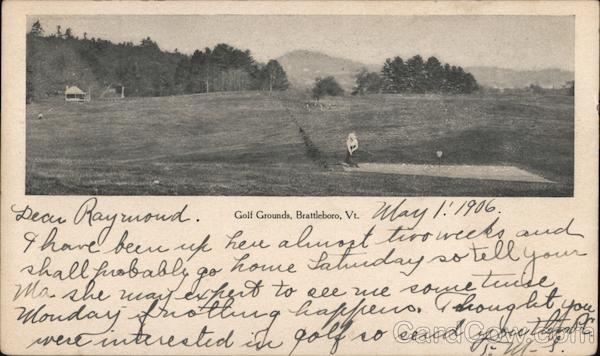 Golf Grounds, Brattleboro, Vt.
Dear Raymond. May 1' 1906.
I have been up here almost two weeks and
shall probably go home Saturday so tell your
Ma. she may expect to see me sometime
Monday if nothing happens. I thought you
were interested in golf so send you this
CardCow.com